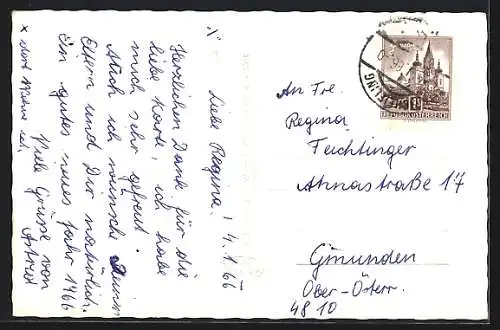 Liebe Regina! 4.1.66
Herzlichen Dank für die
liebe Karte, ich habe
mich sehr gefreut.
Auch ich wünsche
Eltern und Dir natürlich.
Ein gutes neues Jahr 1966
Viele Grüsse von
Astrid
An Fre.
Regina
Feichtinger
Ahnastraße 17
Gmunden
Ober-Österr.
4810
REPUBLIK ÖSTERREICH